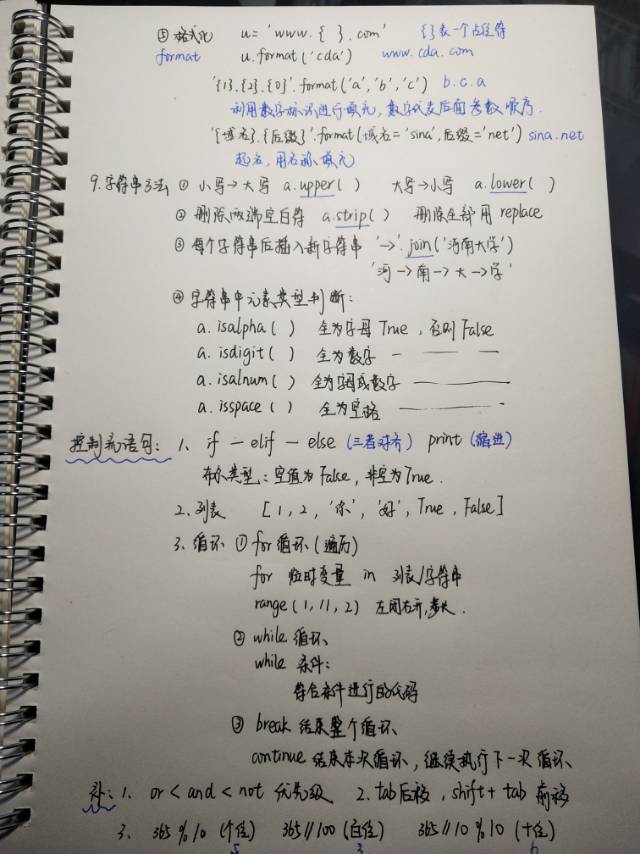 ⑤ 格式化 u='www.{ }.com' { }表一个占位符
format u.format('cda') www.cda.com
'{1}.{2}.{0}'.format('a','b','c') b.c.a
利用数字标识进行填充，数字代表后面参数顺序.
'{域名}.{后缀}'.format(域名='sina',后缀='net') sina.net
起名，用名称填充
9.字符串方法 ① 小写→大写 a.upper( ) 大写→小写 a.lower( )
② 删除两端空白符 a.strip( ) 删除全部用 replace
③ 每个字符串后插入新字符串 '→'.join('河南大学')
'河→南→大→学'
④ 字符串中元素类型判断：
a.isalpha( ) 全为字母 True，否则 False
a.isdigit( ) 全为数字 — — —
a.isalnum( ) 全为字母或数字 ——
a.isspace( ) 全为空格 ——
控制流语句： 1、 if — elif — else (三者对齐) print (缩进)
布尔类型：空值为False，非空为True.
2、列表 [1,2,'你','好',True,False]
3、循环 ① for循环(遍历)
for 临时变量 in 列表/字符串
range(1,11,2) 左闭右开,步长.
② while 循环、
while 条件：
符合条件进行的代码
③ break 结束整个循环、
continue 结束本次循环，继续执行下一次循环、
补：1、 or < and < not 优先级 2、tab后移，shift+tab 前移
3、 365%10 (个位) 365//100 (百位) 365//10%10 (十位)
5 3 6